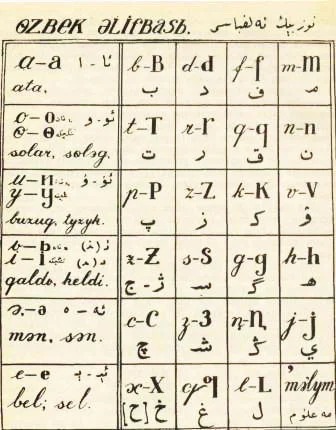 ɵZBEK ƏLİFBASЬ. ئۆزبېك ئەلفباسى
a–a ئا - ا
ata.
b-B
ب
d-d
د
f-f
ف
m-M
م
o–O ئو - و
ɵ–Ɵ
solar, sɵləg.
t-T
ت
r-r
ر
q-q
ق
n-n
ن
u–U ئۇ - ۇ
y–Y
buzuq, tyzyk.
p-P
پ
z-Z
ز
k-K
ك
v-V
ۋ
ь–Ь
i–i
qaldь, keldi.
ƶ-Ƶ
ژ - ج
s-S
س
g-g
گ
h-h
ھ
ə–ə ئە - ە
mən, sən.
c-C
چ
ش
ꞑ-Ꞑ
ڭ
j-j
ي
e–e ئې - ې
bel; sel.
x-X
خ [ح]
غ
l-L
ل
'məlym.
مەعلۇم